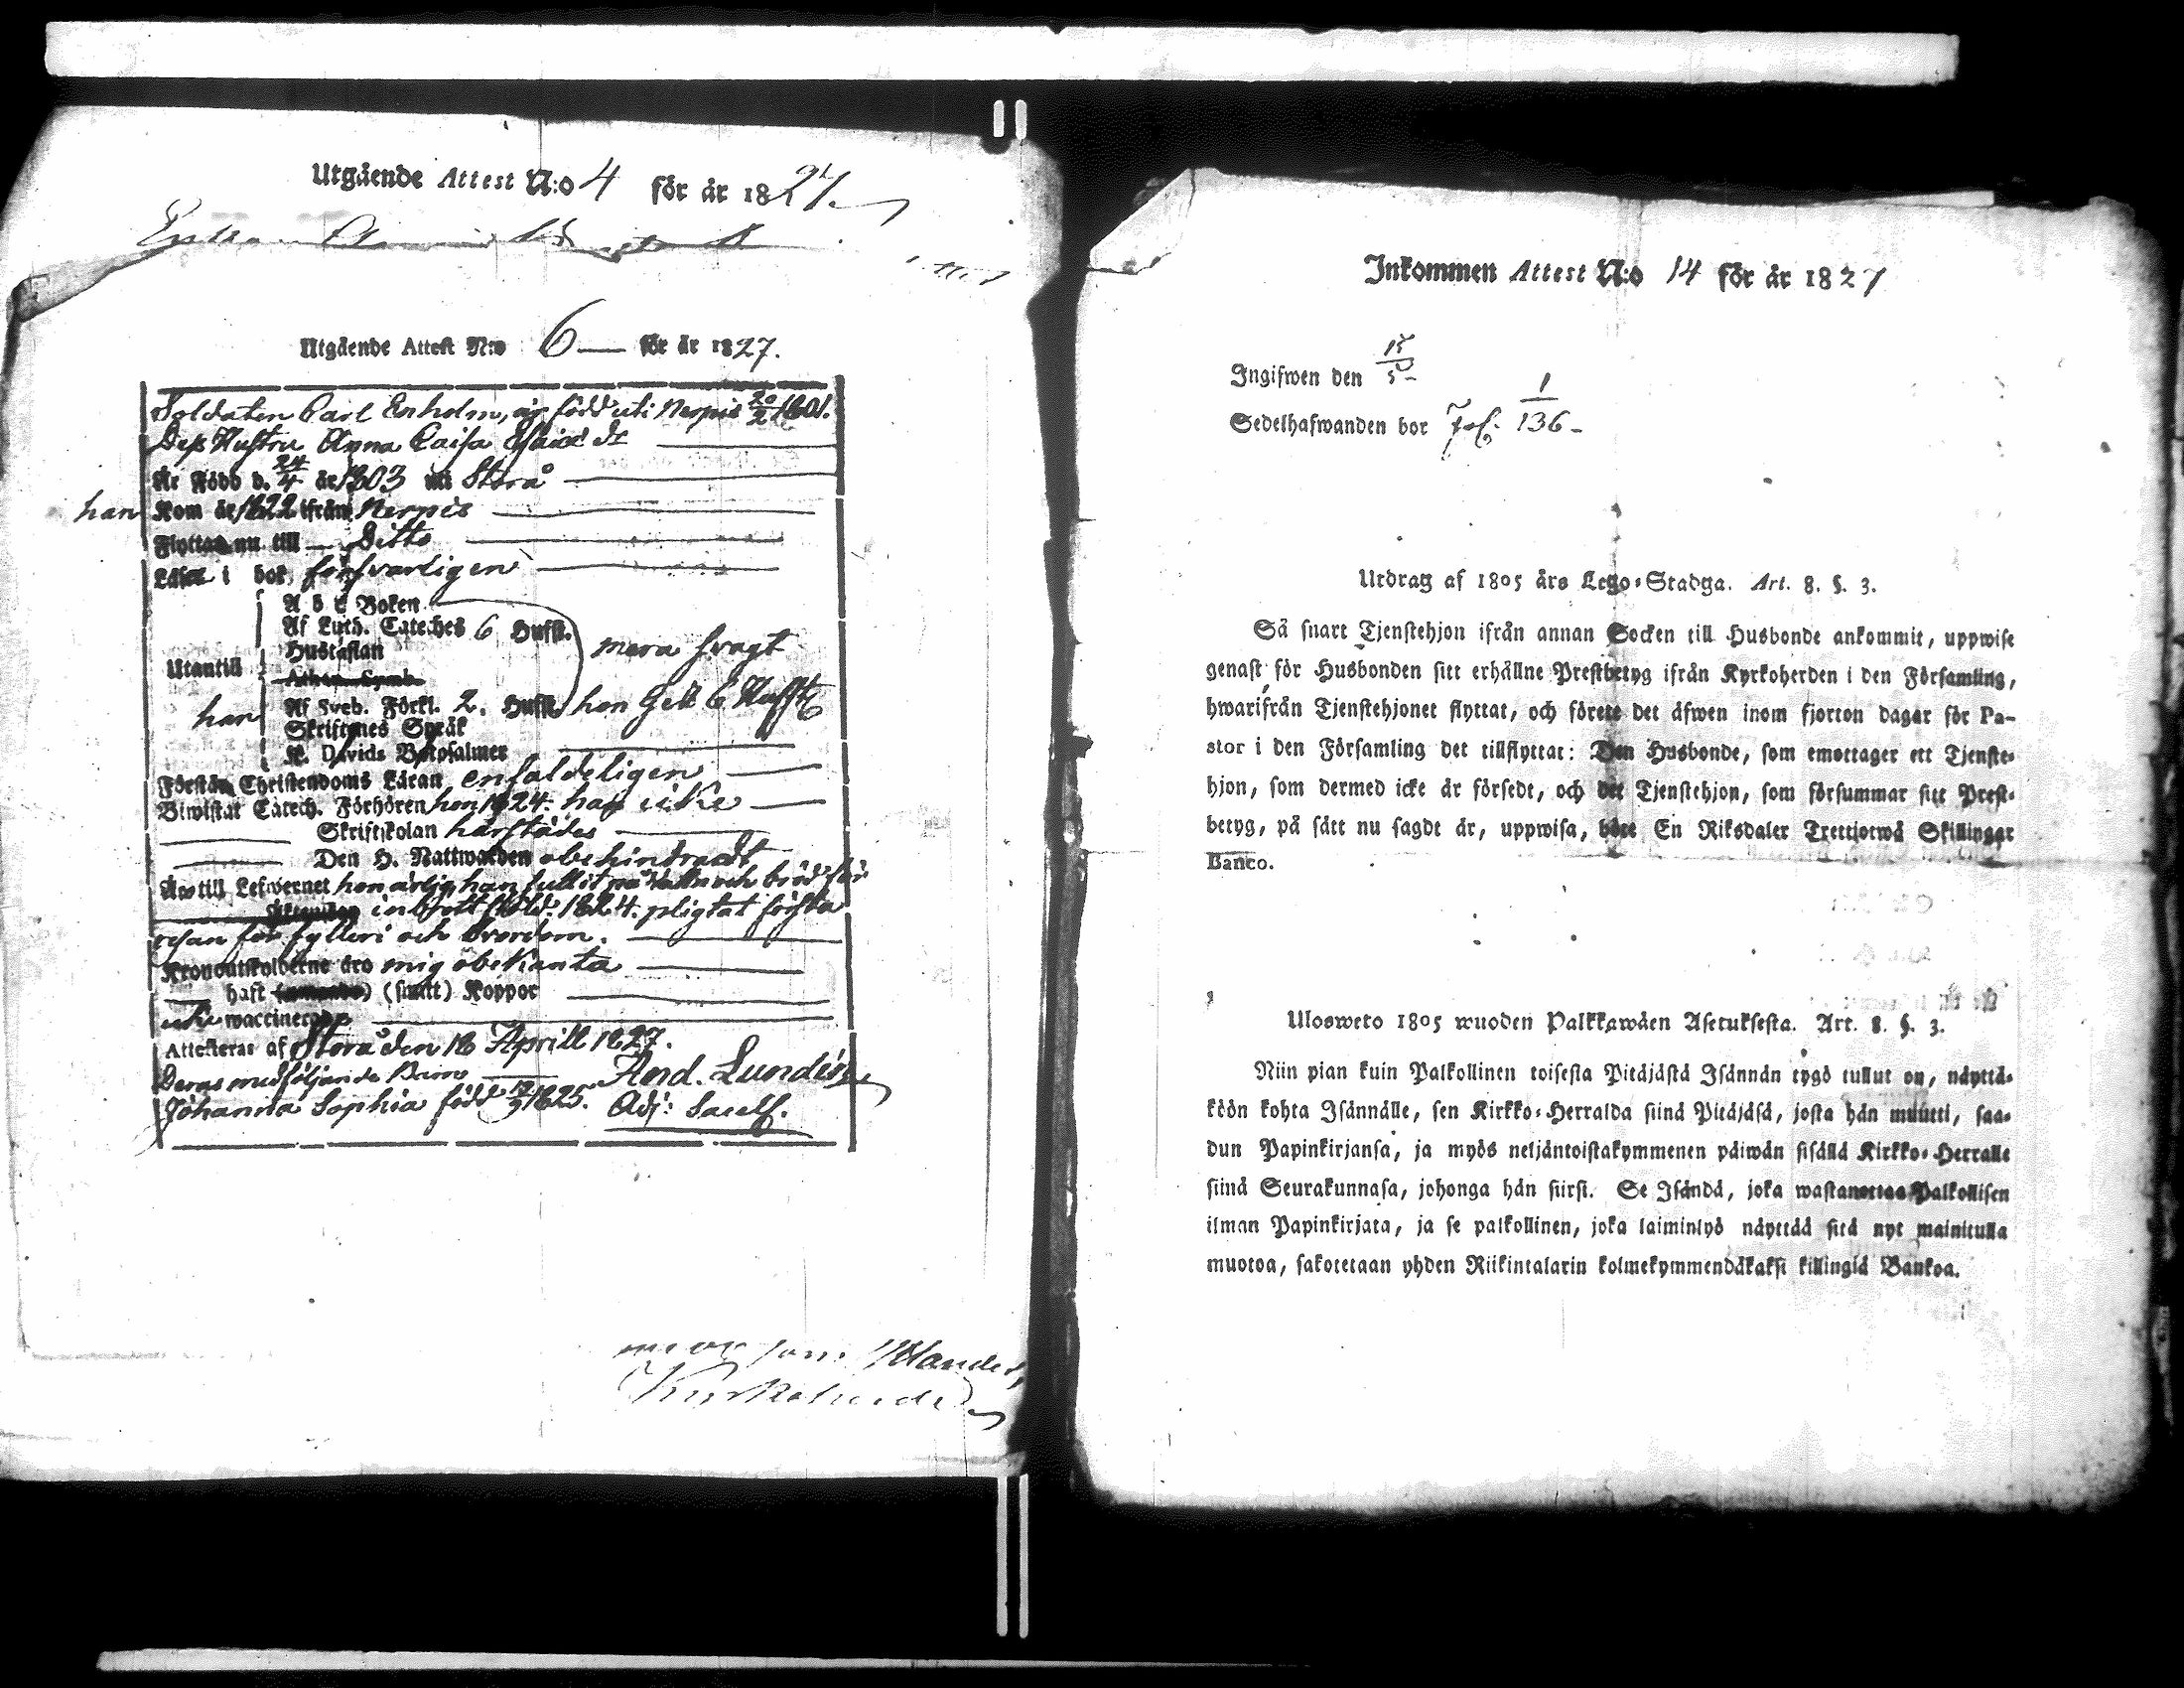 Utgående Attest N:o 4 för år 1827.
Utgående Attest N:o 6 för år 1827.
Soldaten Carl Enholm, är född uti Nerpis 20/2 1801.
Dess Hustru Anna Caisa Esaiæ dr
Är Född d. 24/4 år 1803 uti Storå
han Kom år 1822 ifrån Nerpis
Flyttar nu till Ditto
Läser i bok försvarligen
A b c Boken
Af Luth. Cateches 6 Hufst.
Hustaflan mera svagt
Utantill
Athan. Symb.
han Af Sveb. Förkl. 2. Hufst. hon
Skriftenes Språk
K. Davids Botpsalmer
Förstår Christendoms Läran enfaldeligen
Biwistat Catech. Förhören hon 1824. han icke
Skriftskolan härstädes
Den H. Nattwarden obehindradt
Är till Lefwernet hon ärlig, han fullit på vatten och bröd för
Äktenskap inbrott 1824. pligtat första
resan för fylleri och
Kronoutskylderne äro mig obekanta
haft (smitt) Koppor
icke waccinerade
Attesteras af Storå den 18 Aprill 1827.
Deras medföljande Barn And. Lundén
Johanna Sophia född 1825. Adj: Sacell.
Inkommen Attest N:o 14 för år 1827
Ingifwen den 15/5
Sedelhafwanden bor 1/136
Utdrag af 1805 års Lego-Stadga. Art. 8. §. 3.
Så snart Tjenstehjon ifrån annan Socken till Husbonde ankommit, uppwise
genast för Husbonden sitt erhållne Prestbetyg ifrån Kyrkoherden i den Församling,
hwarifrån Tjenstehjonet flyttat, och förete det äfwen inom fjorton dagar för Pa-
stor i den Församling det tillflyttat: Den Husbonde, som emottager ett Tjenste-
hjon, som dermed icke är försedt, och det Tjenstehjon, som försummar sitt Prest-
betyg, på sätt nu sagdt är, uppwisa, böte En Riksdaler Trettiotwå Skillingar
Banco.
Ulosweto 1805 wuoden Palkkawäen Asetuksesta. Art. 8. §. 3.
Niin pian kuin Palkollinen toisesta Pitäjästä Isännän tygö tullut on, näyttä-
köön kohta Isännälle, sen Kirkko-Herralda siinä Pitäjäsä, josta hän muutti, saa-
dun Papinkirjansa, ja myös neljäntoistakymmenen päiwän sisällä Kirkko-Herralle
siinä Seurakunnasa, johonga hän siirsi. Se Isändä, joka wastanottaa Palkollisen
ilman Papinkirjata, ja se palkollinen, joka laiminlyö näyttää sitä nyt mainitulla
muotoa, sakotetaan yhden Riikintalarin kolmekymmendäkaksi killingiä Bankoa.